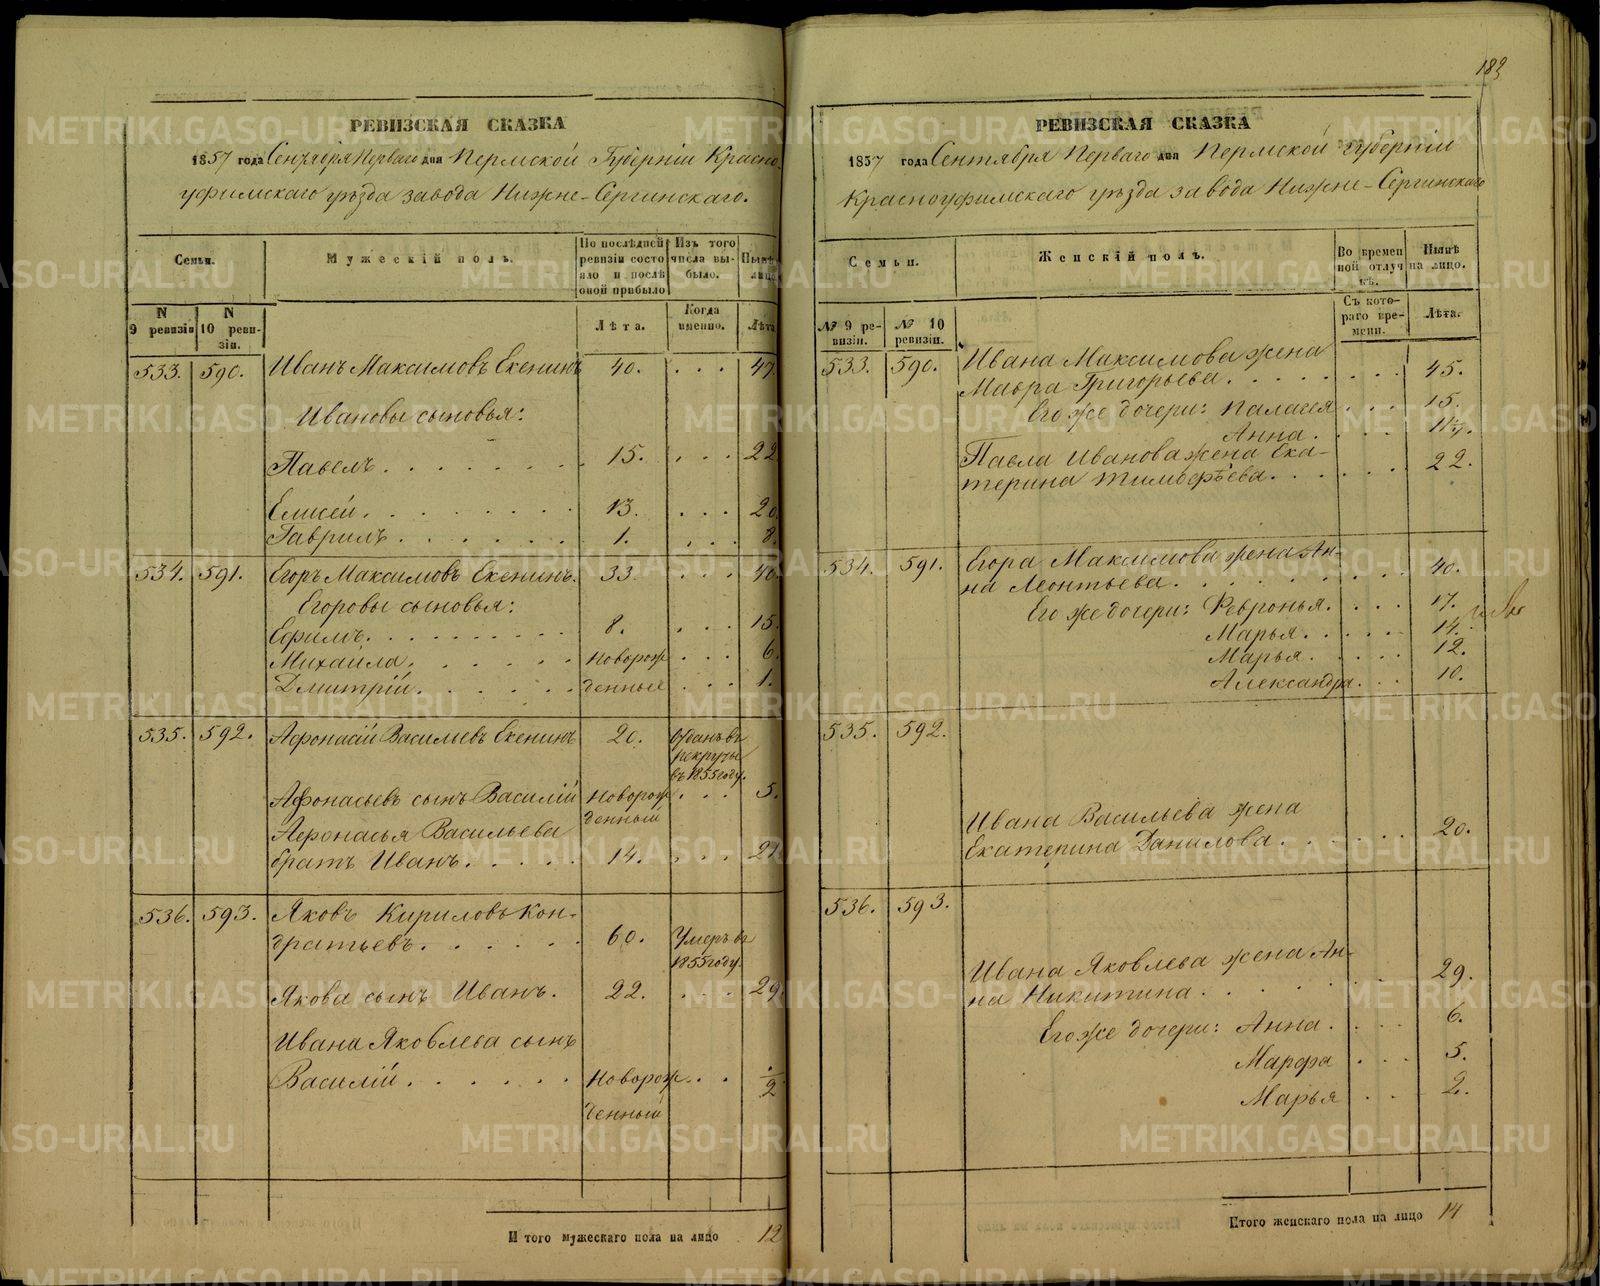 РЕВИЗСКАЯ СКАЗКА
1857 года Сентября Перваго дня Пермской Губерніи Красно
уфимскаго уѣзда завода Нижне-Сергинскаго.
Семьи. Мужескій полъ. По послѣдней ревизіи состо яло и послѣ оной прибыло Изъ того числа вы- было. Нынѣ лицо
N 9 ревизіи N 10 реви- зіи. Лѣта. Когда именно. Лѣта
533. 590. Иванъ Максимовъ Екенинъ 40. . . . 47
Ивановы сыновья:
Павелъ. . . . . . . . 15. . . . 22
Елисей. . . . . . . . 13. . . . 20
Гаврилъ. . . . . . . 1. . . . 8.
534. 591. Егоръ Максимовъ Екенинъ. 33 . . . 40.
Егоровы сыновья:
Ефимъ. . . . . . . . 8. . . . 15.
Михайла. . . . . . Новорож . . . 6.
Дмитрій. . . . . . денные . . . 1.
535. 592. Афонасій Васильевъ Екенинъ 20. отданъ въ
рекруты
въ 1855 году.
Афонасьевъ сынъ Василій Новорож . . . 5.
денный
Афонасья Васильева
братъ Иванъ. . . . . 14. . . . 21.
536. 593. Яковъ Кириловъ Кон-
дратьевъ. . . . . . 60. Умеръ въ
1855 году.
Якова сынъ Иванъ. 22. . . . 29.
Ивана Яковлева сынъ
Василій. . . . . . Новорож. . . 1/2
денный
И того мужескаго пола на лицо 12
183
РЕВИЗСКАЯ СКАЗКА
1857 года Сентября Перваго дня Пермской губерніи
Красноуфимскаго уѣзда завода Нижне-Сергинскаго
Семьи. Женскій полъ. Во времен ной отлуч кѣ. Нынѣ на лицо.
№ 9 ре- визіи. № 10 ревизіи. Съ кото- раго вре- мени. Лѣта.
533. 590. Ивана Максимова жена
Мавра Григорьева. . . . . . . . 45.
Его же дочери: Паласея . . . 15.
Анна. . . . 11 1/2.
Павла Иванова жена Ека-
терина Тимофѣева. . . . . . . 22.
534. 591. Егора Максимова жена Ан-
на Леонтьева. . . . . . . . . 40.
Его же дочери: Февронья. . . . 17.
Марья. . . . . 14.
Марья. . . . . 12.
Александра. . . 10.
535. 592.
Ивана Васильева жена
Екатерина Данилова. . . . . 20.
536. 593.
Ивана Яковлева жена Ан-
на Никитина. . . . . . . . 29.
Его же дочери: Анна. . . . 6.
Марфа . . . 5.
Марья . . . 2.
Итого женскаго пола на лицо 14
METRIKI.GASO-URAL.RU